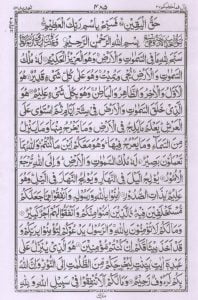 ٤٨٥
حَقُّ الْيَقِيْنِ فَسَبِّحْ بِاسْمِ رَبِّكَ الْعَظِيْمِ
بِسْمِ اللهِ الرَّحْمٰنِ الرَّحِيْمِ
لِلّٰهِ مَا فِي السَّمٰوٰتِ وَالْاَرْضِ وَهُوَ الْعَزِيْزُ الْحَكِيْمُ لَهٗ مُلْكُ السَّمٰوٰتِ
وَالْاَرْضِ يُحْيٖ وَيُمِيْتُ وَهُوَ عَلٰى كُلِّ شَيْءٍ قَدِيْرٌ هُوَ الْاَوَّلُ
وَالْاٰخِرُ وَالظَّاهِرُ وَالْبَاطِنُ وَهُوَ بِكُلِّ شَيْءٍ عَلِيْمٌ هُوَ
الَّذِيْ خَلَقَ السَّمٰوٰتِ وَالْاَرْضَ فِيْ سِتَّةِ اَيَّامٍ ثُمَّ اسْتَوٰى عَلَى
الْعَرْشِ يَعْلَمُ مَا يَلِجُ فِي الْاَرْضِ وَمَا يَخْرُجُ مِنْهَا وَمَا يَنْزِلُ
مِنَ السَّمَآءِ وَمَا يَعْرُجُ فِيْهَا وَهُوَ مَعَكُمْ اَيْنَ مَا كُنْتُمْ وَاللّٰهُ بِمَا
تَعْمَلُوْنَ بَصِيْرٌ لَهٗ مُلْكُ السَّمٰوٰتِ وَالْاَرْضِ وَاِلَى اللّٰهِ تُرْجَعُ
الْاُمُوْرُ يُوْلِجُ الَّيْلَ فِي النَّهَارِ وَيُوْلِجُ النَّهَارَ فِي الَّيْلِ وَهُوَ
عَلِيْمٌ بِذَاتِ الصُّدُوْرِ اٰمِنُوْا بِاللّٰهِ وَرَسُوْلِهٖ وَاَنْفِقُوْا مِمَّا جَعَلَكُمْ
مُّسْتَخْلَفِيْنَ فِيْهِ فَالَّذِيْنَ اٰمَنُوْا مِنْكُمْ وَاَنْفَقُوْا لَهُمْ اَجْرٌ كَبِيْرٌ
وَمَا لَكُمْ لَا تُؤْمِنُوْنَ بِاللّٰهِ وَالرَّسُوْلُ يَدْعُوْكُمْ لِتُؤْمِنُوْا بِرَبِّكُمْ وَ
قَدْ اَخَذَ مِيْثَاقَكُمْ اِنْ كُنْتُمْ مُّؤْمِنِيْنَ هُوَ الَّذِيْ يُنَزِّلُ عَلٰى
عَبْدِهٖٓ اٰيٰتٍ بَيِّنٰتٍ لِّيُخْرِجَكُمْ مِّنَ الظُّلُمٰتِ اِلَى النُّوْرِ وَاِنَّ اللّٰهَ
بِكُمْ لَرَءُوْفٌ رَّحِيْمٌ وَمَا لَكُمْ اَلَّا تُنْفِقُوْا فِيْ سَبِيْلِ اللّٰهِ وَلِلّٰهِ